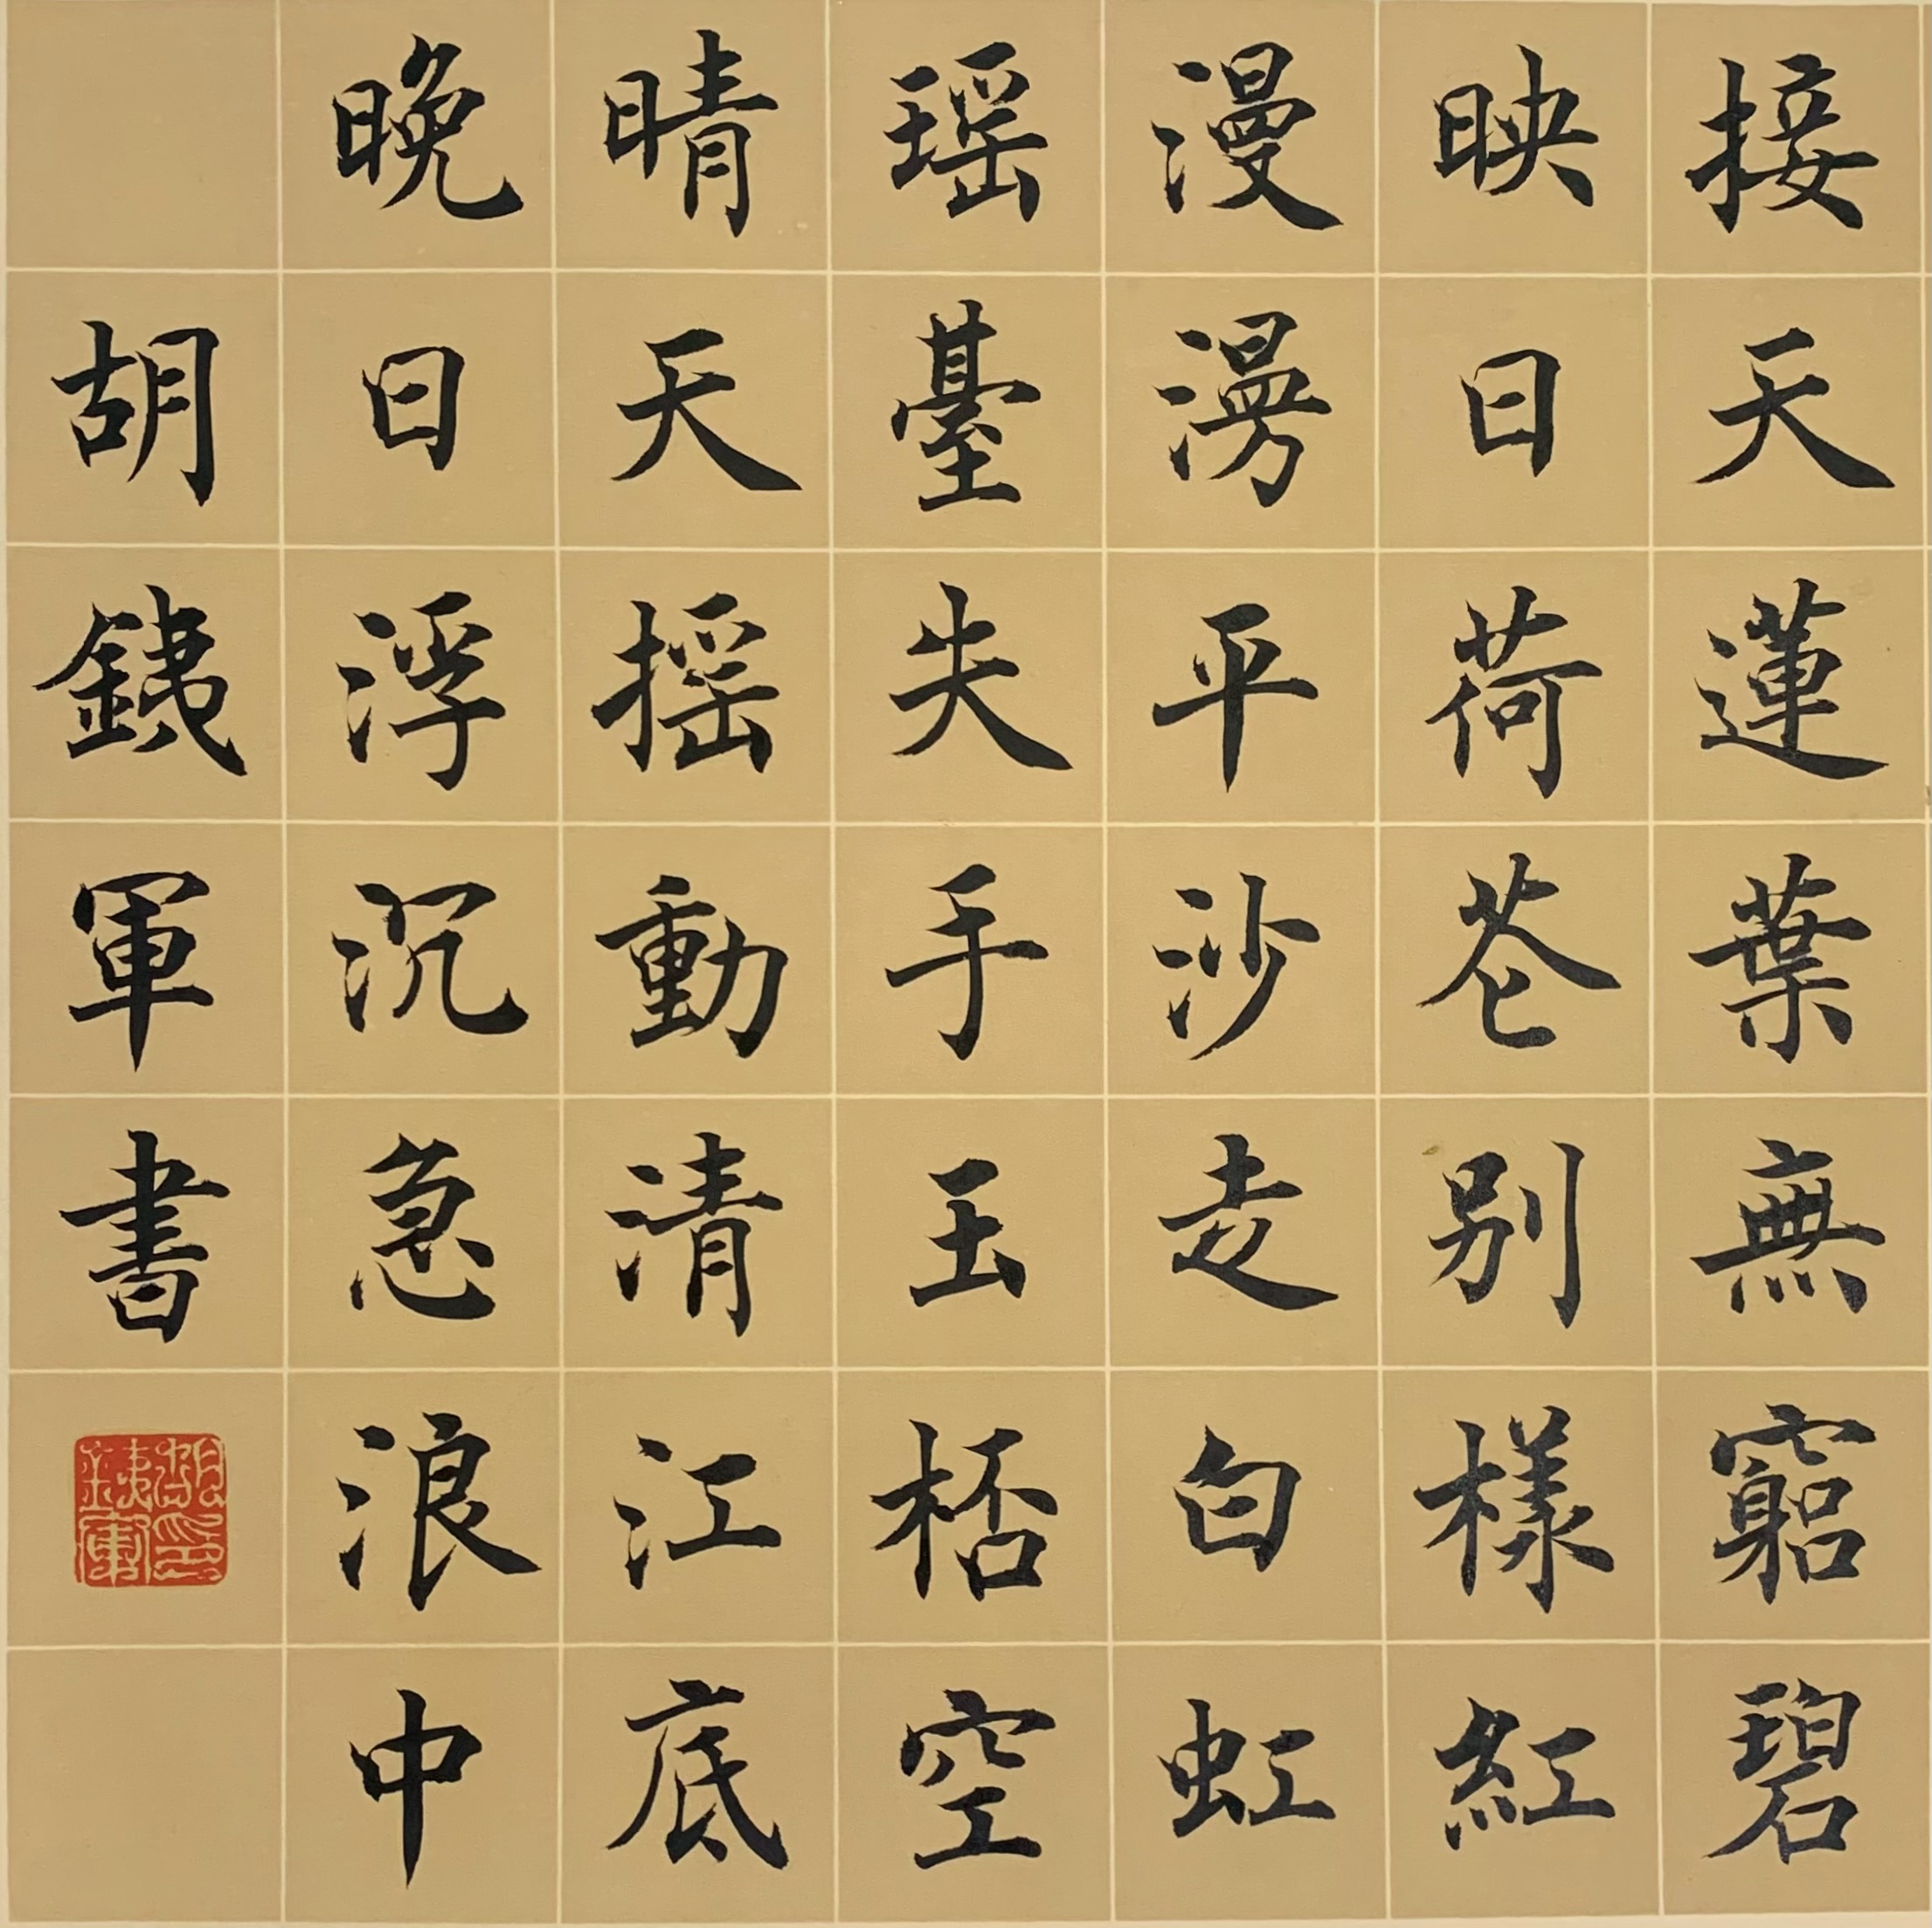 接天蓮葉無窮碧
映日荷花別樣紅
漫漫平沙走白虹
瑶臺失手玉杯空
晴天摇動清江底
晚日浮沉急浪中
胡銕軍書
胡印銕軍